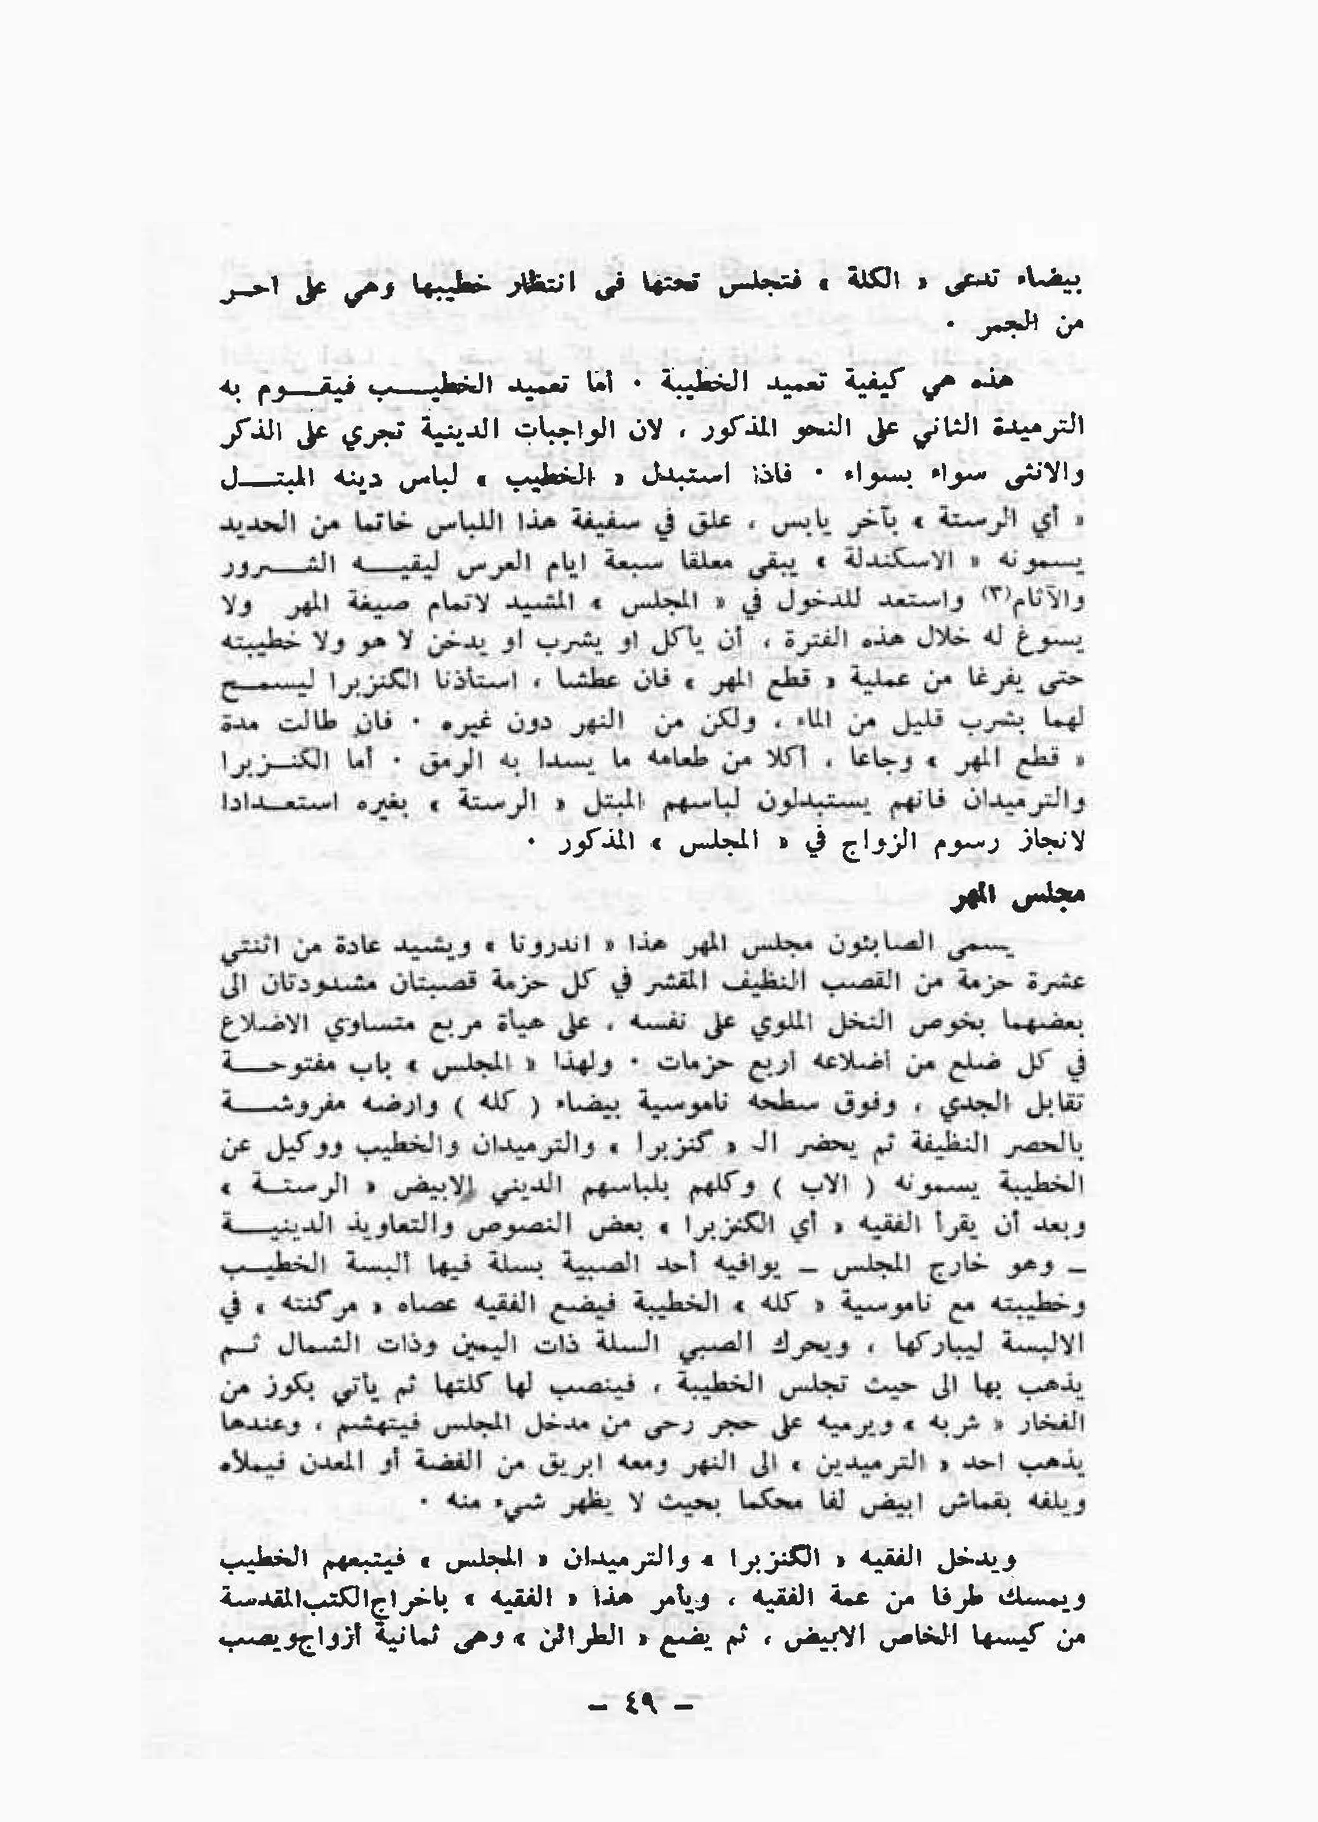 بيضاء تدعى « الكلة » فتجلس تحتها في انتظار خطيبها وهي على احر
من الجمر ٠
هذه هي كيفية تعميد الخطيبة ٠ أما تعميد الخطيب فيقوم به
الترميدة الثاني على النحو المذكور ، لان الواجبات الدينية تجري على الذكر
والانثى سواء بسواء ٠ فاذا استبدل « الخطيب » لباس دينه المبتل
« أي الرستة » بآخر يابس ، علق في سفيفة هذا اللباس خاتما من الحديد
يسمونه « الاسكندلة » يبقى معلقا سبعة ايام العرس ليقيه الشرور
والآثام(٣) واستعد للدخول في « المجلس » المشيد لاتمام صيغة المهر ولا
يسوغ له خلال هذه الفترة ، أن يأكل او يشرب او يدخن لا هو ولا خطيبته
حتى يفرغا من عملية « قطع المهر » فان عطشا ، استأذنا الكنزبرا ليسمح
لهما بشرب قليل من الماء ، ولكن من النهر دون غيره ٠ فان طالت مدة
« قطع المهر » وجاعا ، أكلا من طعامه ما يسدا به الرمق ٠ أما الكنزبرا
والترميدان فانهم يستبدلون لباسهم المبتل « الرستة » بغيره استعدادا
لانجاز رسوم الزواج في « المجلس » المذكور ٠
مجلس المهر
يسمى الصابئون مجلس المهر هذا « اندرونا » ويشيد عادة من اثنتي
عشرة حزمة من القصب النظيف المقشر في كل حزمة قصبتان مشدودتان الى
بعضهما بخوص النخل الملوي على نفسه ، على هيأة مربع متساوي الاضلاع
في كل ضلع من أضلاعه أربع حزمات ٠ ولهذا « المجلس » باب مفتوحة
تقابل الجدي ، وفوق سطحه ناموسية بيضاء ( كله ) وارضه مفروشة
بالحصر النظيفة ثم يحضر الـ « گنزبرا » والترميدان والخطيب ووكيل عن
الخطيبة يسمونه ( الاب ) وكلهم بلباسهم الديني الابيض « الرستة »
وبعد أن يقرأ الفقيه « أي الكنزبرا » بعض النصوص والتعاويذ الدينية
ـ وهو خارج المجلس ـ يوافيه أحد الصبية بسلة فيها ألبسة الخطيب
وخطيبته مع ناموسية « كله » الخطيبة فيضع الفقيه عصاه « مرگنته » في
الالبسة ليباركها ، ويحرك الصبي السلة ذات اليمين وذات الشمال ثم
يذهب بها الى حيث تجلس الخطيبة ، فينصب لها كلتها ثم يأتي بكوز من
الفخار « شربه » ويرميه على حجر رحى من مدخل المجلس فيتهشم ، وعندها
يذهب احد « الترميدين » الى النهر ومعه ابريق من الفضة أو المعدن فيملأه
ويلفه بقماش ابيض لفا محكما بحيث لا يظهر شيء منه ٠
ويدخل الفقيه « الكنزبرا » والترميدان « المجلس » فيتبعهم الخطيب
ويمسك طرفا من عمة الفقيه ، ويأمر هذا « الفقيه » باخراج الكتب المقدسة
من كيسها الخاص الابيض ، ثم يضع « الطرائن » وهي ثمانية أزواج ويصب
– ٤٩ –